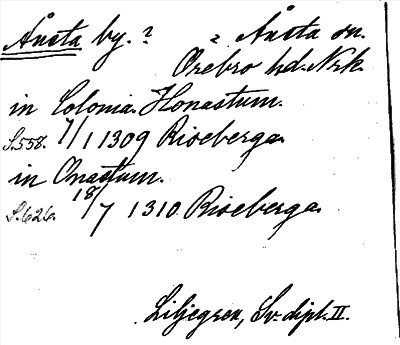 Ånsta by. ? ? Ånsta sn.
Örebro hd. Nrk.
in Colonia. Honastum.
S.558. 7/1 1309 Riseberga.
in Onastum.
S.626. 18/7 1310. Riseberga.
Liljegren, Sv. dipl. II.